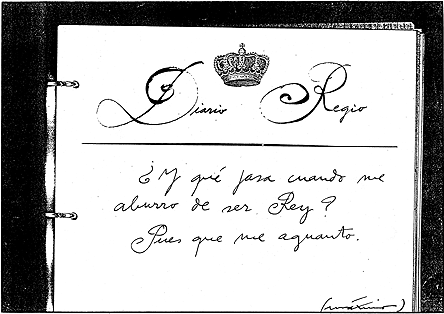 Diario Regio
¿Y qué pasa cuando me
aburro de ser Rey?
Pues que me aguanto.
(máximo)